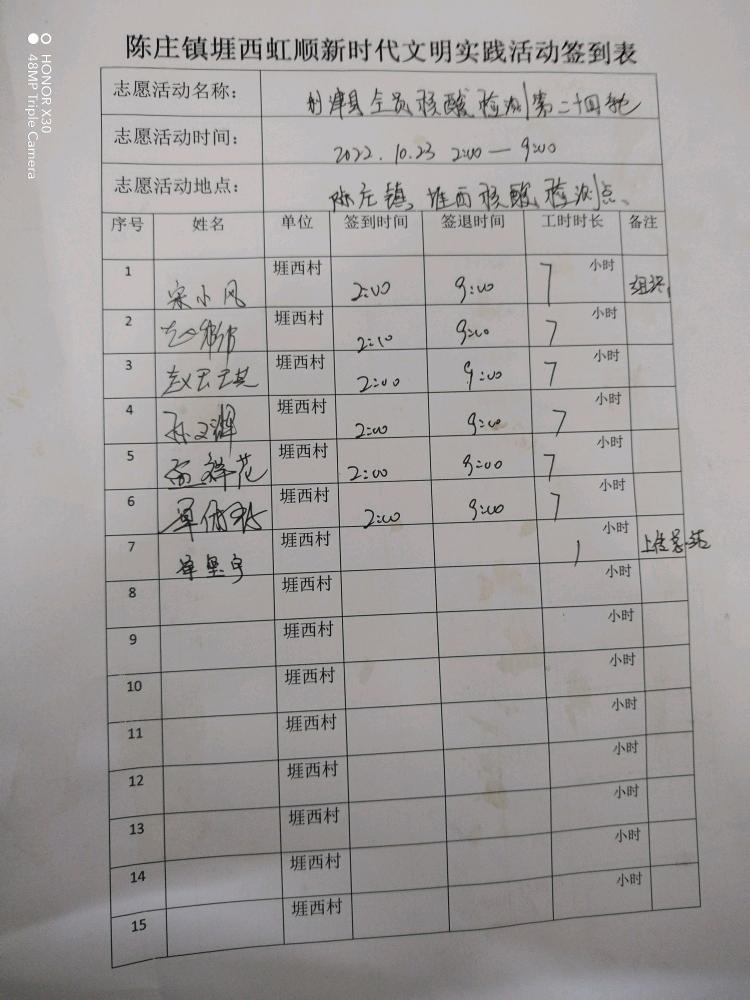 HONOR X30
48MP Triple Camera
陈庄镇堐西虹顺新时代文明实践活动签到表
志愿活动名称： 利津县全员核酸检测第二十四轮
志愿活动时间： 2022.10.23 2:00—9:00
志愿活动地点： 陈庄镇堐西核酸检测点、
序号 姓名 单位 签到时间 签退时间 工时时长 备注
1 宋小风 堐西村 2:00 9:00 7 小时 组织
2 堐西村 2:10 9:00 7 小时
3 堐西村 2:00 9:00 7 小时
4 孙文 堐西村 2:00 9:00 7 小时
5 祥花 堐西村 2:00 9:00 7 小时
6 堐西村 2:00 9:00 7 小时
7 堐西村 1 小时 上传总站
8 堐西村 小时
9 堐西村 小时
10 堐西村 小时
11 堐西村 小时
12 堐西村 小时
13 堐西村 小时
14 堐西村 小时
15 堐西村 小时